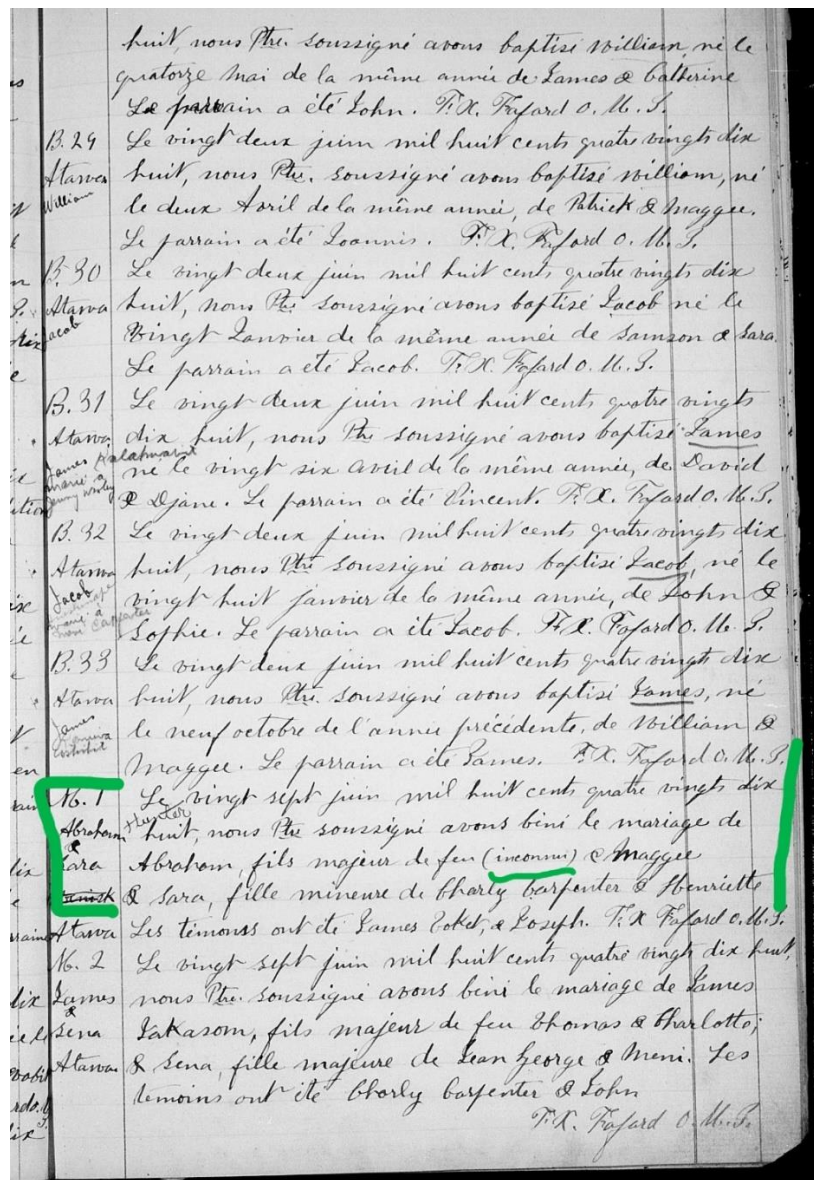 huit, nous Ptre. soussigné avons baptisé William, né le
quatorze Mai de la même année de James & Catherine
Le parrain a été John. F.X. Fafard O.M.I.
B.29 Le vingt deux juin mil huit cents quatre vingts dix
Atawa huit, nous Ptre. soussigné avons baptisé William, né
William le deux Avril de la même année, de Patrick & Maggee.
Le parrain a été Joannis. F.X. Fafard O.M.I.
B.30 Le vingt deux juin mil huit cents quatre vingts dix
Atawa huit, nous Ptre soussigné avons baptisé Jacob né le
Jacob vingt Janvier de la même année de Samson & Sara.
Le parrain a été Jacob. F.X. Fafard O.M.I.
B.31 Le vingt deux juin mil huit cents quatre vingts
Atawa dix huit, nous Ptre soussigné avons baptisé James
James
marié à né le vingt six avril de la même année, de David
& Djane. Le parrain a été Vincent. F.X. Fafard O.M.I.
B.32 Le vingt deux juin mil huit cents quatre vingts dix
Atawa huit, nous Ptre soussigné avons baptisé Jacob, né le
Jacob vingt huit janvier de la même année, de John &
Sophie. Le parrain a été Jacob. F.X. Fafard O.M.I.
B.33 Le vingt deux juin mil huit cents quatre vingts dix
Atawa huit, nous Ptre. soussigné avons baptisé James, né
James le neuf octobre de l'année précédente, de William &
Maggee. Le parrain a été James. F.X. Fafard O.M.I.
M.1 Le vingt sept juin mil huit cents quatre vingts dix
Abraham Hunter huit, nous Ptre soussigné avons béni le mariage de
& Sara Abraham, fils majeur de feu (inconnu) & Maggee
& Sara, fille mineure de Charly Carpenter & Henriette
Atawa Les témoins ont été James & Joseph. F.X Fafard O.M.I.
M.2 Le vingt sept juin mil huit cents quatre vingts dix huit,
James nous Ptre. soussigné avons béni le mariage de James
& Sena Takasom, fils majeur de feu Thomas & Charlotte;
Atawa & Sena, fille majeure de Jean George & Meni. Les
témoins ont été Charly Carpenter & John
F.X. Fafard O.M.I.